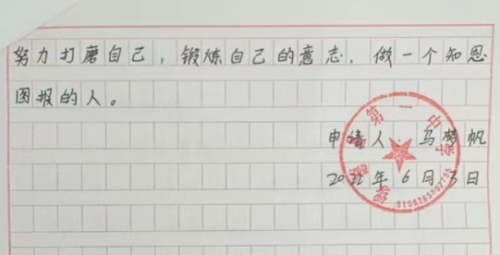 努力打磨自己，锻炼自己的意志，做一个知恩
图报的人。
申请人：马梦帆
2022年6月3日
第一中学